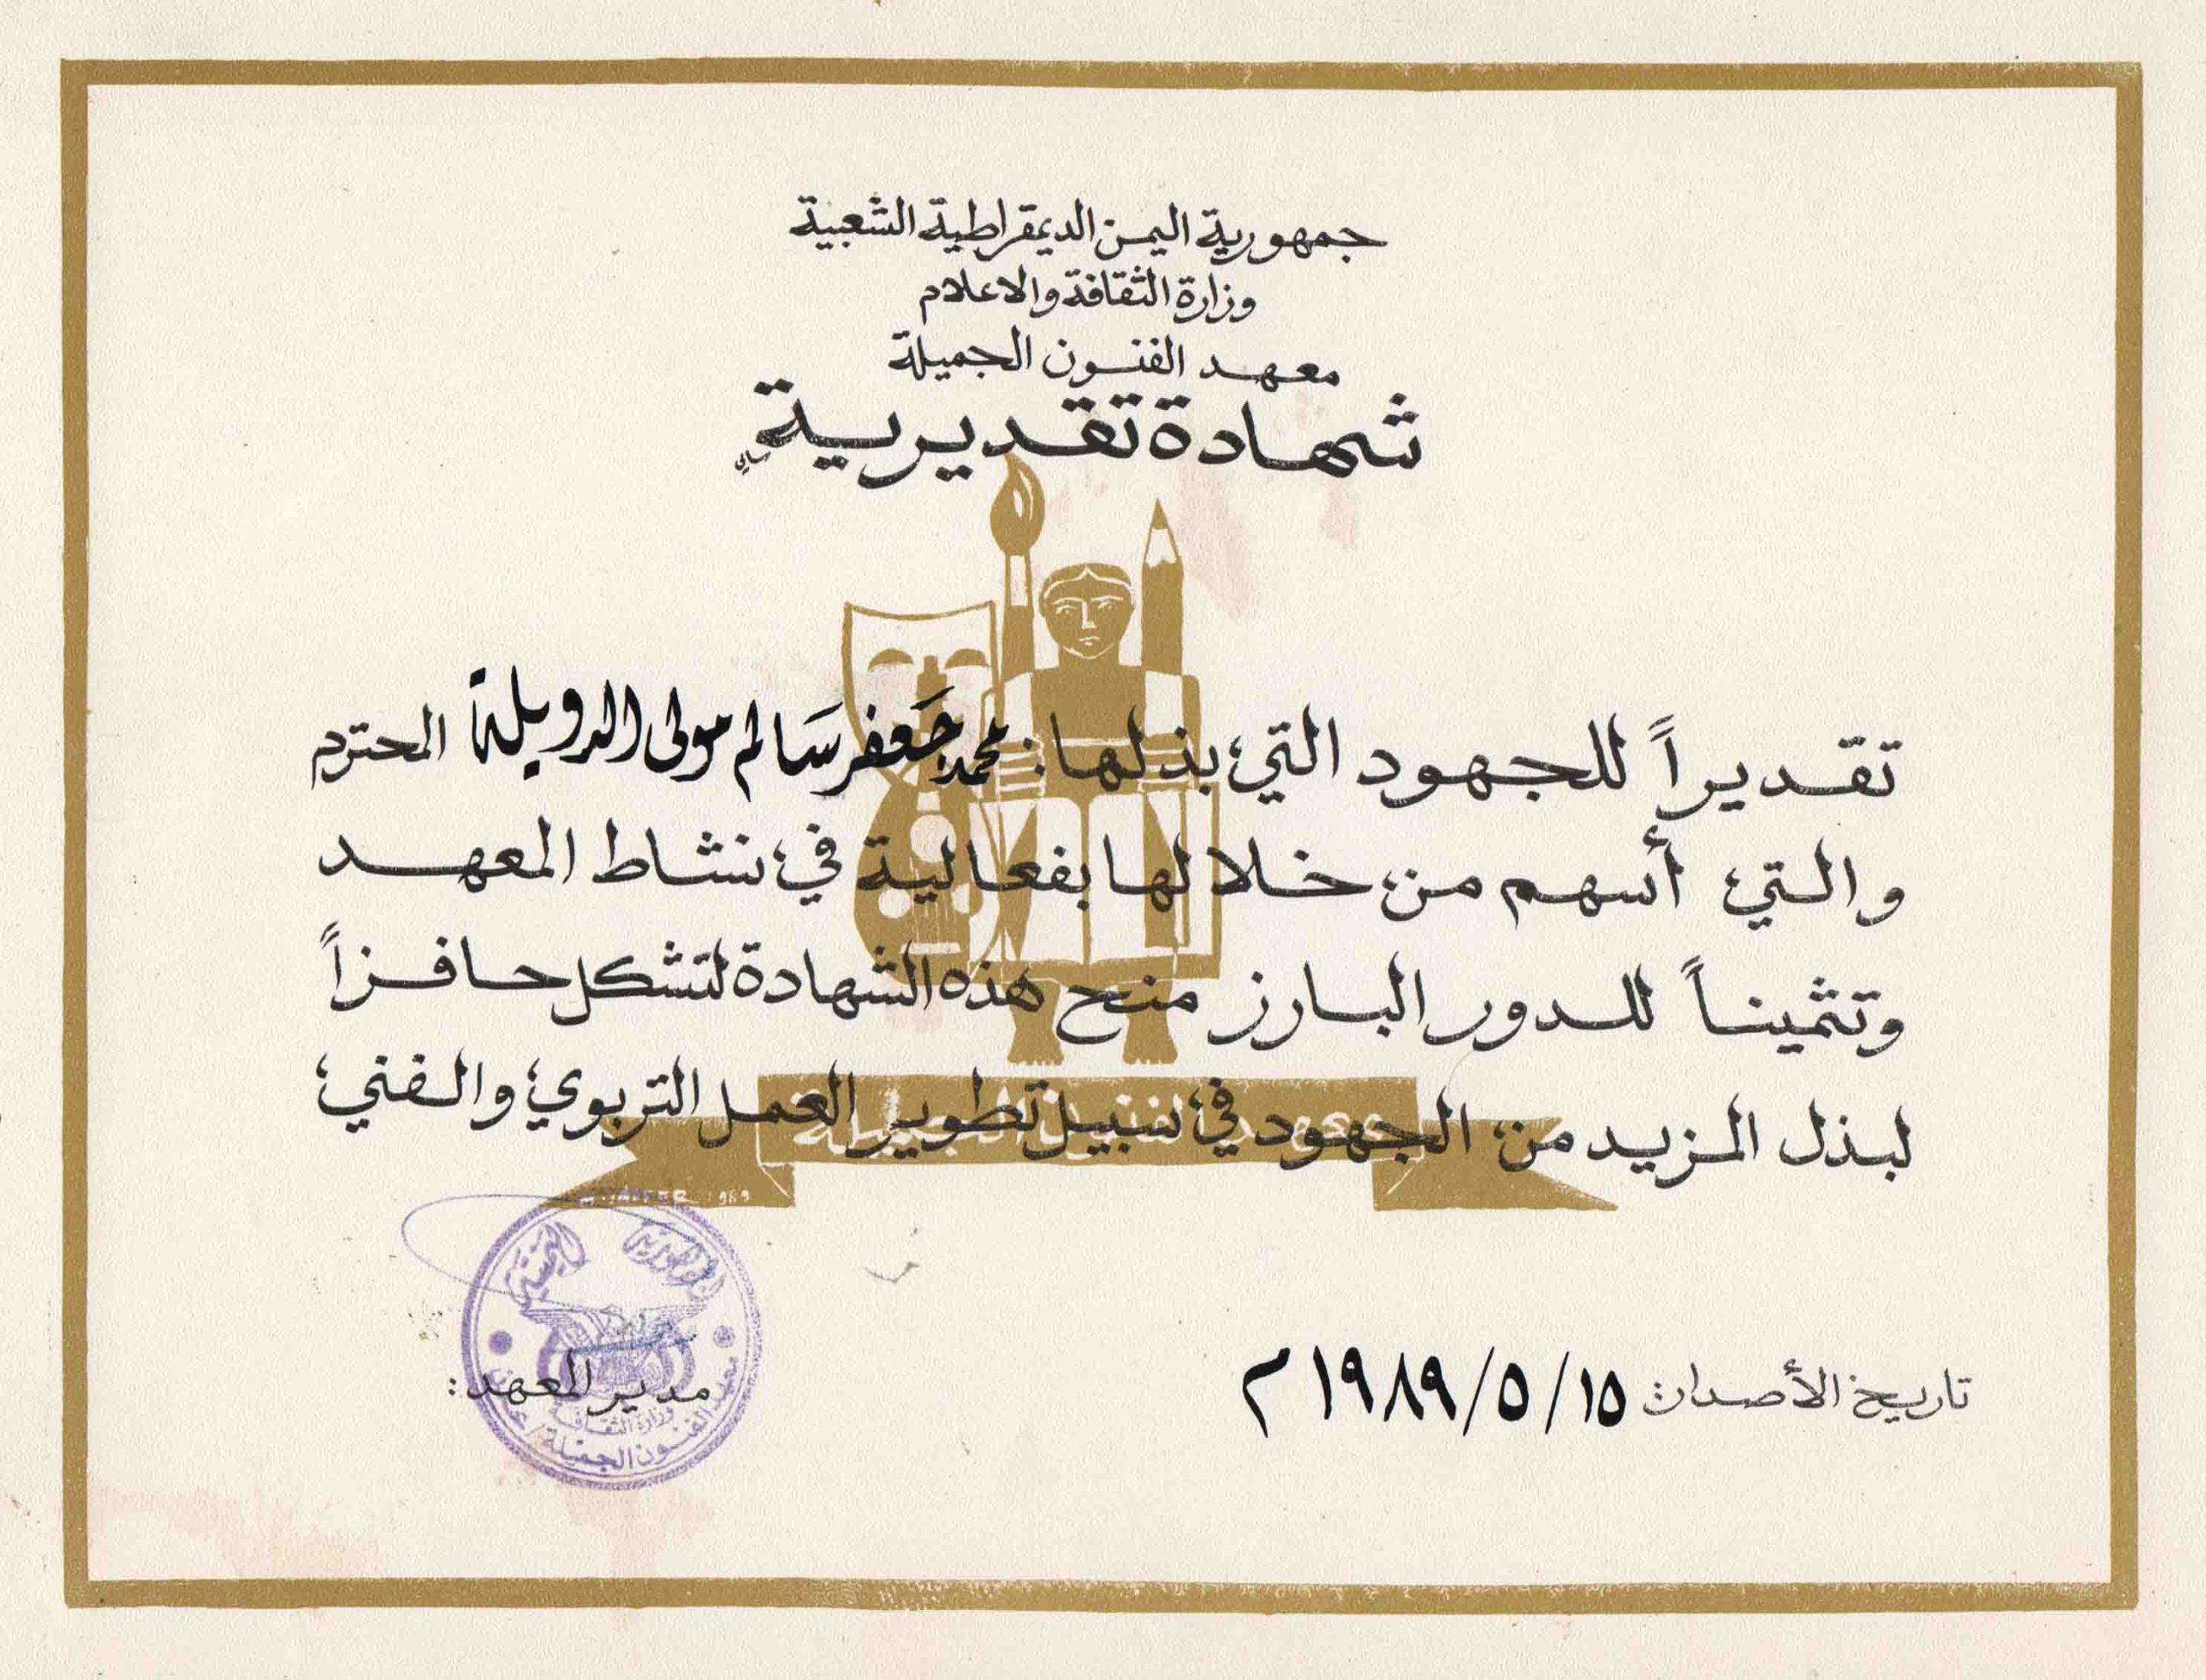 جمهورية اليمن الديمقراطية الشعبية
وزارة الثقافة والاعلام
معهد الفنون الجميلة
شهادة تقديرية
تقديراً للجهود التي بذلها: محمد جعفر سالم مولى الدويلة المحترم
والتي أسهم من خلالها بفعالية في نشاط المعهد
وتثميناً للدور البارز منح هذه الشهادة لتشكل حافزاً
لبذل المزيد من الجهود في سبيل تطوير العمل التربوي والفني
تاريخ الأصدار: ١٩٨٩/٥/١٥ م
مدير المعهد:
وزارة الثقافة
معهد الفنون الجميلة